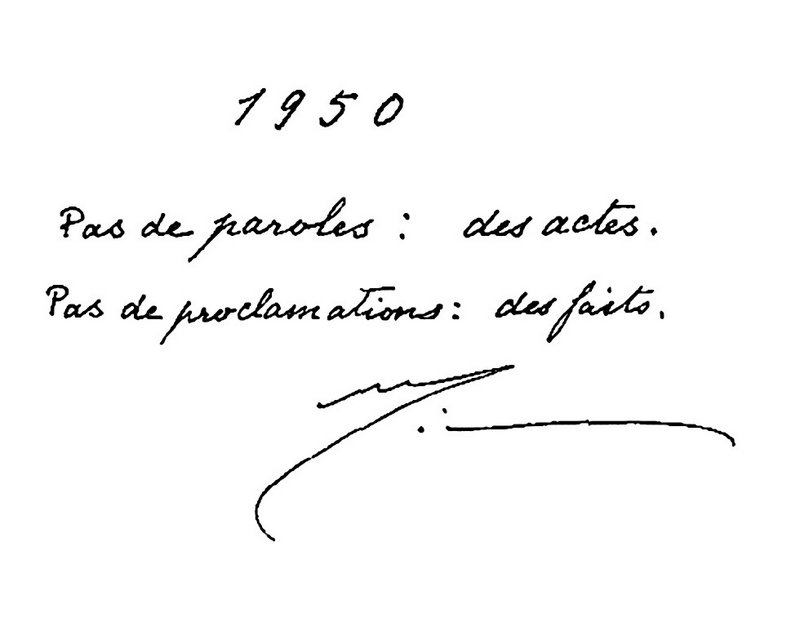 1950
Pas de paroles : des actes.
Pas de proclamations : des faits.